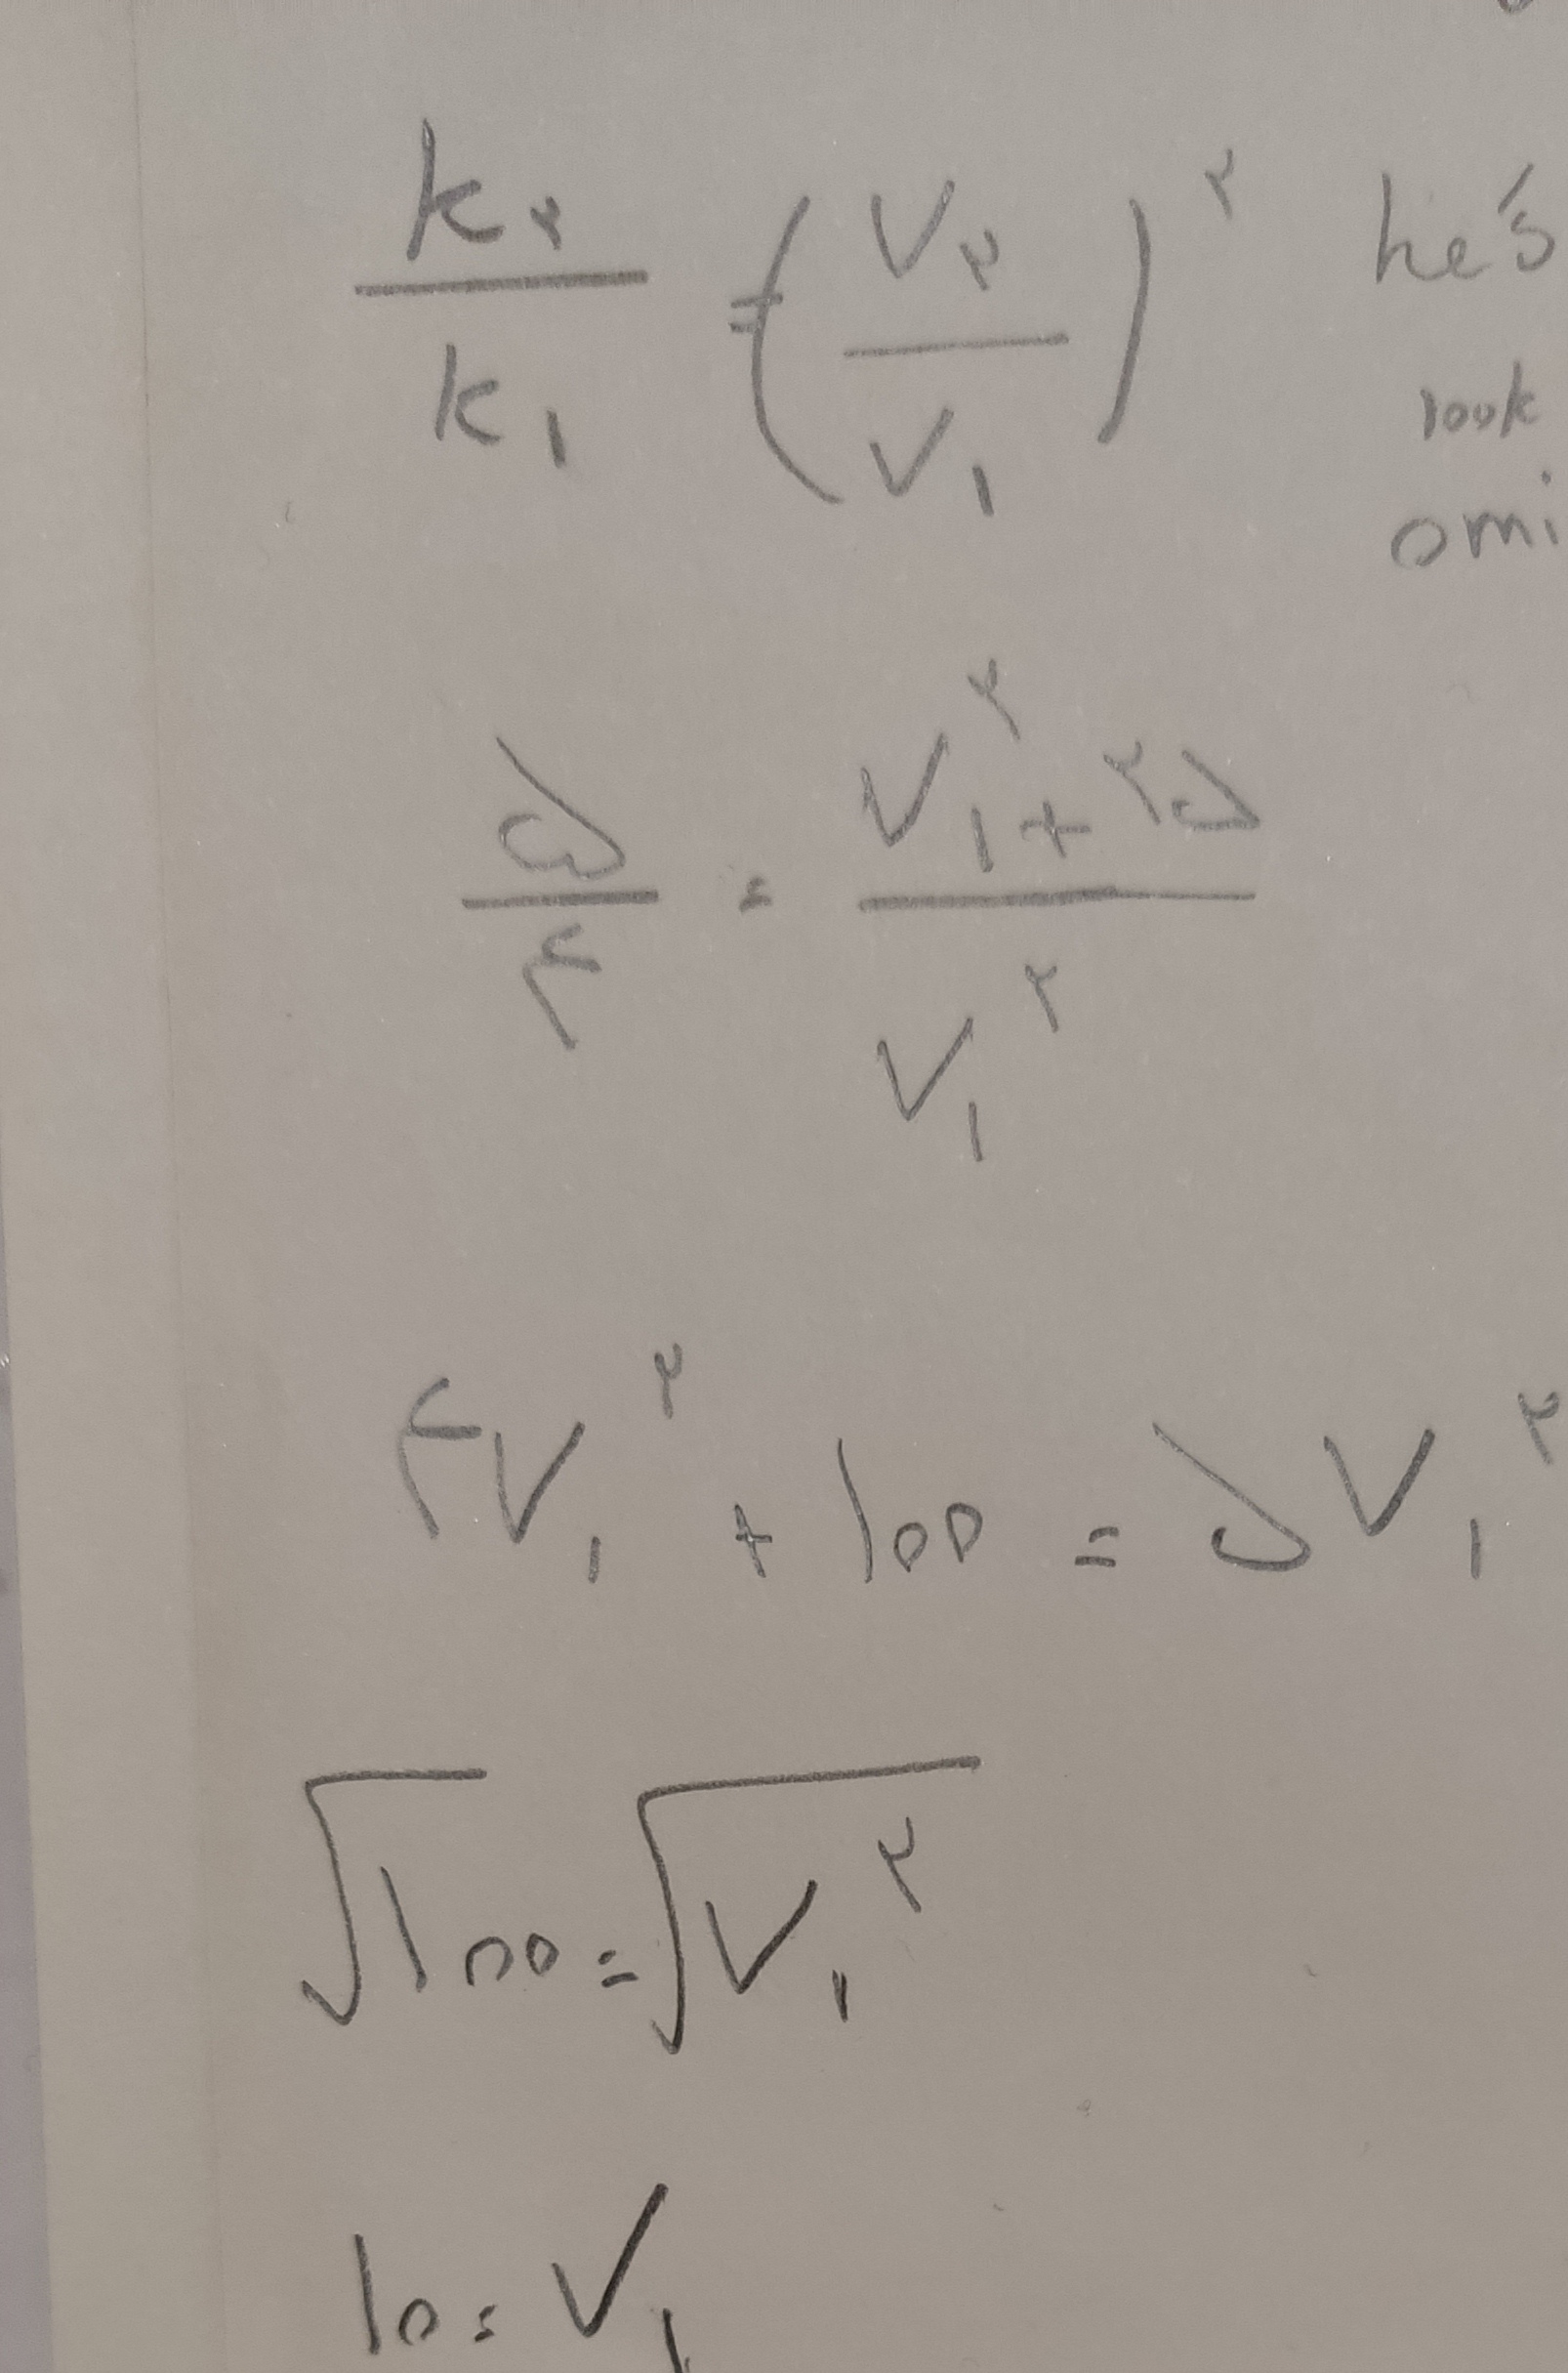 k₂/k₁ = (V₂/V₁)^۲ he's
look
omi
۵/۴ = V₁^۲ + ۲۵ / V₁^۲
۴V₁^۲ + ۱۰۰ = ۵V₁^۲
√۱۰۰ = √V₁^۲
۱۰ = V₁